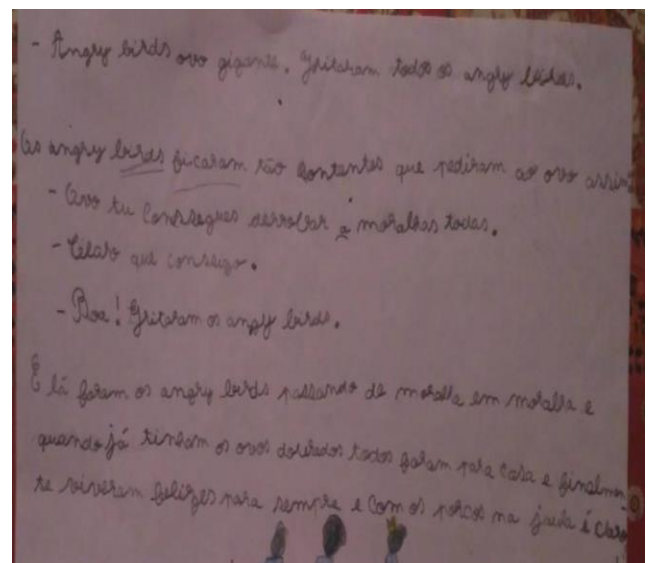 - Angry birds ovo gigante. Gritaram todos os angry birds.
Os angry birds ficaram tão contentes que pediram ao ovo assim
- Ovo tu conssegues derrobar a moralhas todas.
- Claro que conssigo.
- Boa! Gritaram os angry birds.
E lá foram os angry birds passando de moralha em moralha e
quando já tinham os ovos dourados todos foram para casa e finalmen-
te viveram felizes para sempre e com os porcos na jaula é claro